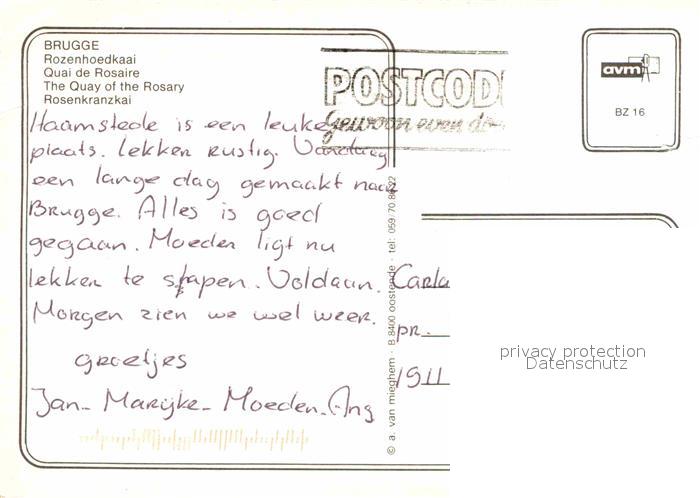 BRUGGE
Rozenhoedkaai
Quai de Rosaire
The Quay of the Rosary
Rosenkranzkai
POSTCODE
Gewoon even do
avm
BZ 16
Haamstede is een leuke
plaats. Lekker rustig. Vandaag
een lange dag gemaakt naar
Brugge. Alles is goed
gegaan. Moeder ligt nu
lekker te slapen. Voldaan.
Morgen zien we wel weer.
groetjes
Jan - Marijke - Moeder - Ang
© a. van mieghem - B 8400 oostende - tel: 059-70.86.22
Carla
pr.
1911
privacy protection
Datenschutz